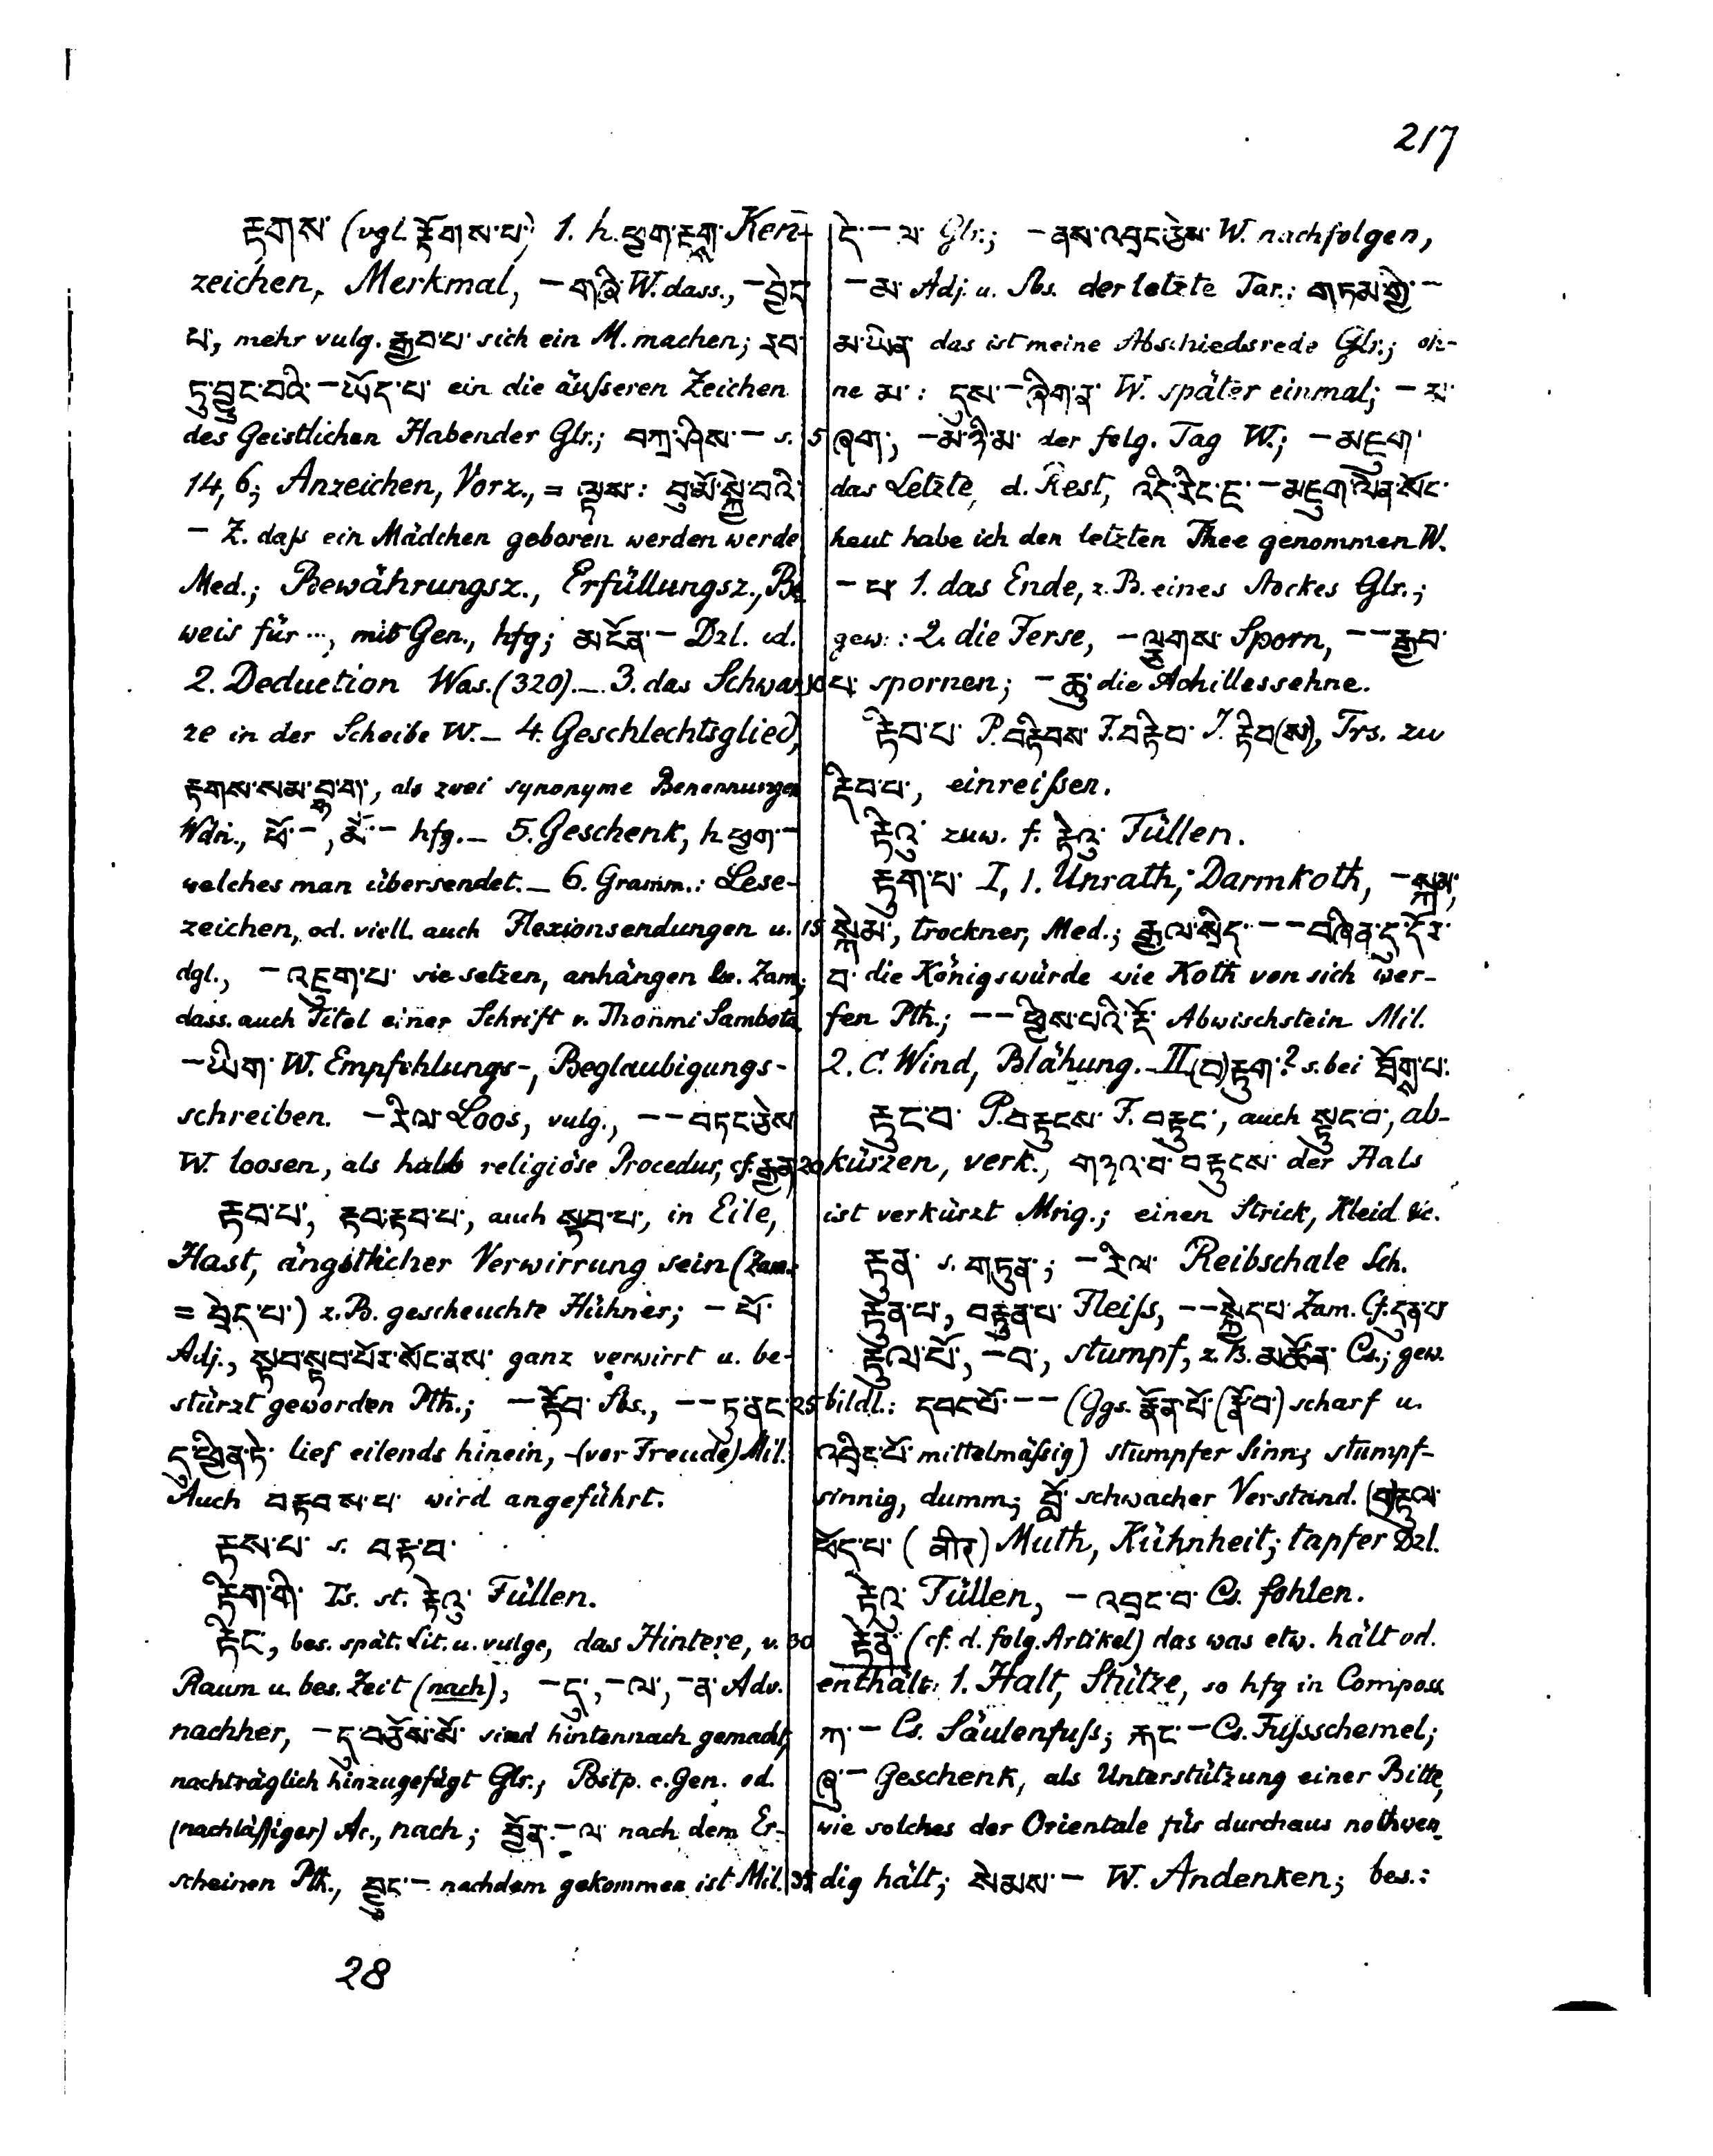 217
རྟགས་ (vgl. རྟོགས་པ་) 1. h. ཕྱག་རྟགས་ Ken-
zeichen, Merkmal, – གཞི་ W. dass., – བྱེད་
པ་, mehr vulg. རྒྱབ་པ་ sich ein M. machen; རབ་
ཏུ་བྱུང་བའི་ – ཡོད་པ་ ein die äußeren Zeichen
des Geistlichen Habender Glr.; བཀྲ་ཤིས་ – s.
14, 6; Anzeichen, Vorz., = ལྟས་: བུ་མོ་སྐྱེ་བའི་
– Z. daß ein Mädchen geboren werden werde
Med.; Bewährungsz., Erfüllungsz., Be
weis für ..., mit Gen., hfg; མངོན་ – Dzl. id.
2. Deduction Was. (320). – 3. das Schwar
ze in der Scheibe W. – 4. Geschlechtsglied,
རྟགས་སམ་བྷ་ག་, als zwei synonyme Benennungen
Wdn., ཕོ་ –, མོ་ – hfg. – 5. Geschenk, h. ཕྱག་ –
welches man übersendet. – 6. Gramm.: Lese-
zeichen, od. viell. auch Flexionsendungen u.
dgl., – འཇུག་པ་ sie setzen, anhängen Zam;
dass. auch Titel einer Schrift v. Thonmi Sambota
– ཡིག་ W. Empfehlungs-, Beglaubigungs-
schreiben. – རིལ་ Loos, vulg., – – བཏང་ཅེས
W. loosen, als halb religiöse Procedur, cf. རྒྱན་
རྟབ་པ་, རྟབ་རྟབ་པ་, auch སྟབ་པ་, in Eile,
Hast, ängstlicher Verwirrung sein (Zam.
= བྲེད་པ་) z.B. gescheuchte Hühner; – པོ་
Adj., སྟབ་སྟབ་པོར་སོང་ནས་ ganz verwirrt u. be-
stürzt geworden Pth.; – རྟོབ་ Sbs., – – ཏུ་ནང་
དུ་ཕྱིན་ཏེ་ lief eilends hinein, (vor Freude) Mil.
Auch བརྟབས་པ་ wird angeführt.
རྟས་པ་ s. བརྟ་བ་
རྟིག་གི་ Ts. st. རྟེའུ་ Füllen.
རྟིང་, bes. spät. Lit. u. vulgo, das Hintere, v.
Raum u. bes. Zeit (nach), – དུ་, – ལ་, – ན་ Adv.
nachher, – དུ་བཅོས་སོ་ sind hintennach gemacht,
nachträglich hinzugefügt Glr.; Postp. c. Gen. od.
(nachläßiger) Ac., nach; བྱོན་ – ལ་ nach dem Er-
scheinen Pth., བྱུང་ – nachdem gekommen ist Mil.
28
དེ་ – ལ་ Glr.; – ནས་འབྲང་ཅེས་ W. nachfolgen,
– མ་ Adj. u. Sbs. der letzte Tar.: གཏམ་གྱི་ –
མ་ཡིན་ das ist meine Abschiedsrede Glr.; oh-
ne མ་: དུས་ – ཞིག་ན་ W. später einmal; – མ་
5 ཞག་, – མ་ཉི་མ་ der folg. Tag W.; – མཇུག་
das Letzte, d. Rest, འདི་རིང་ཇ་ – མཇུག་ལེན་སོང་
heut habe ich den letzten Thee genommen W.
– པ་ 1. das Ende, z.B. eines Stockes Glr.;
gew.: 2. die Ferse, – ལྕགས་ Sporn, – – རྒྱབ་
10 པ་ spornen; – ཆུ་ die Achillessehne.
རྟིབ་པ་ P. བརྟིབས་ F. བརྟིབ་ I. རྟིབ(ས), Trs. zu
རྡིབ་པ་, einreißen.
རྟིའུ་ zuw. f. རྟེའུ་ Füllen.
རྟུག་པ་ I, 1. Unrath, Darmkoth, – སྐམ་,
15 སྐེམ་, trockner, Med.; རྒྱལ་སྲིད་ – – བཞིན་དུ་དོར་
བ་ die Königswürde wie Koth von sich wer-
fen Pth.; – – ཕྱིས་པའི་རྡོ་ Abwischstein Mil.
2. C. Wind, Blähung. – II (བ)རྟུག་? s. bei ཐོག་པ་.
རྟུང་བ་ P. བརྟུངས་ F. བརྟུང་, auch སྟུང་བ་, ab-
20 kürzen, verk., གཉའ་བ་བརྟུངས་ der Hals
ist verkürzt Mng.; einen Strick, Kleid &c.
རྟུན་ s. གཏུན་; – རིལ་ Reibschale Sch.
རྟུན་པ་, བརྟུན་པ་ Fleiss, – – སྐྱེད་པ་ Zam. Cf. དུན་པ་
རྟུལ་པོ་, – བ་, stumpf, z.B. མཚོན་ Cs.; gew.
25 bildl.: དབང་པོ་ – – (Ggs. རྣོན་པོ་ (རྣོ་བ་) scharf u.
འབྲིང་པོ་ mittelmäßig) stumpfer Sinn; stumpf-
sinnig, dumm; བློ་ schwacher Verstand. (བ)རྟུལ་
ཕོད་པ་ (वीर) Muth, Kühnheit; tapfer Dzl.
རྟེའུ་ Füllen, – འབྲང་བ་ Cs. fohlen.
30 རྟེན་ (cf. d. folg. Artikel) das was etw. hält od.
enthält: 1. Halt, Stütze, so hfg in Compos.
ཀ་ – Cs. Säulenfuß; རྐང་ – Cs. Fußschemel;
ཞུ་ – Geschenk, als Unterstützung einer Bitte,
wie solches der Orientale für durchaus nothwen
35 dig hält; སེམས་ – W. Andenken; bes.: